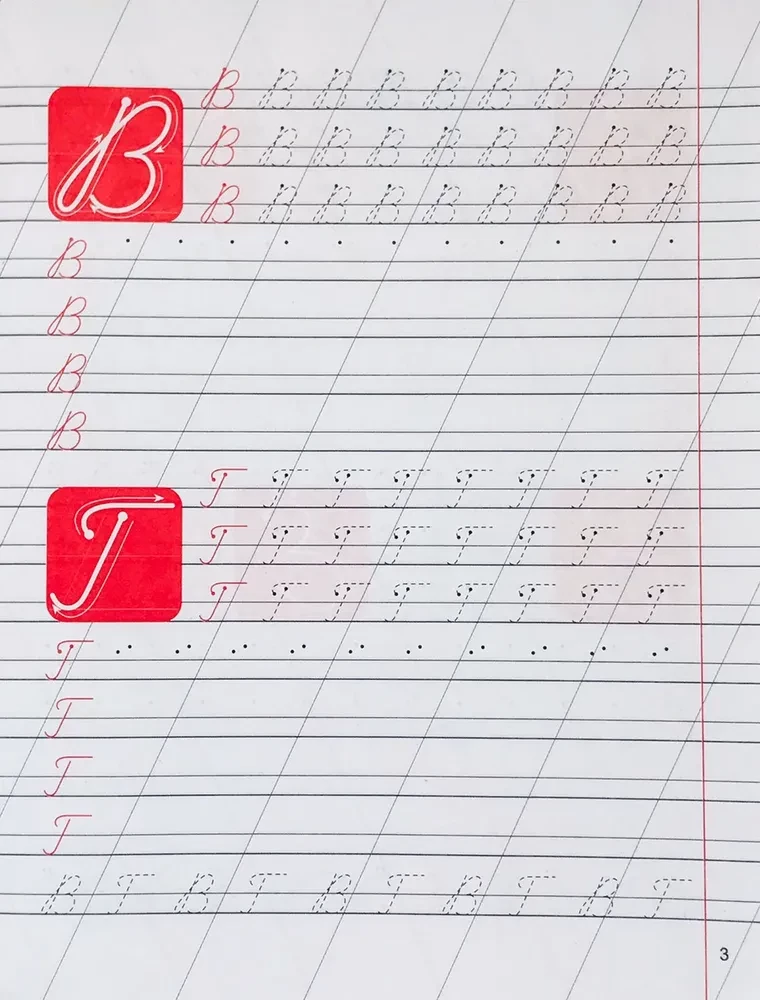 В
В В В В В В В В В
В В В В В В В В В
В В В В В В В В В
В
В
В
В
Г
Г Г Г Г Г Г Г Г
Г Г Г Г Г Г Г Г
Г Г Г Г Г Г Г Г
Г
Г
Г
Г
В Г В Г В Г В Г В Г
3